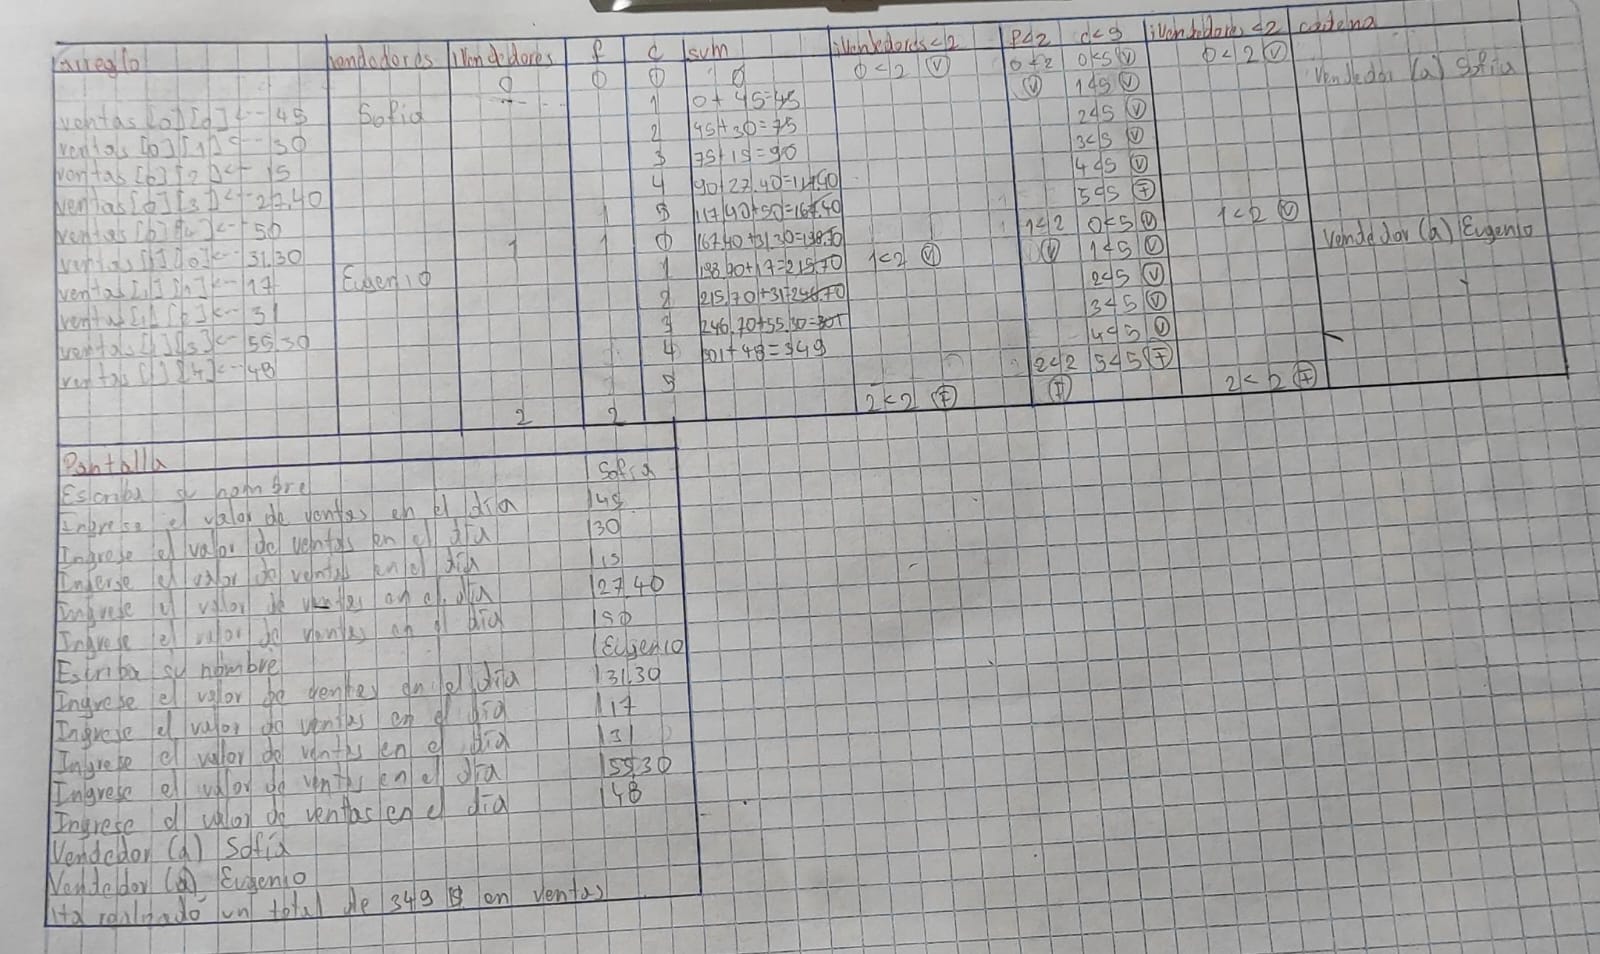 arreglo vendedores iVendedores f c sum iVendedores<2 f<2 c<5 iVendedores<2 cadena
0 0 0 0 0<2 (V) 0<2 0<5 (V) 0<2 (V)
ventas[0][0]<--45 Sofia 1 0+45=45 (V) 1<5 (V) Vendedor (a) Sofia
ventas[0][1]<--30 2 45+30=75 2<5 (V)
ventas[0][2]<--15 3 75+15=90 3<5 (V)
ventas[0][3]<--27.40 4 90+27.40=117.40 4<5 (V)
ventas[0][4]<--50 1 5 117.40+50=167.40 5<5 (F)
ventas[1][0]<--31.30 1 1 0 167.40+31.30=198.70 1<2 0<5 (V) 1<2 (V)
ventas[1][1]<--17 Eugenio 1 198.90+17=215.70 1<2 (V) (V) 1<5 (V) Vendedor (a) Eugenio
ventas[1][2]<--31 2 215.70+31=246.70 2<5 (V)
ventas[1][3]<--55.30 3 246.70+55.30=301 3<5 (V)
ventas[1][4]<--48 4 301+48=349 4<5 (V)
5 2<2 5<5 (F)
2 2 2<2 (F) (F) 2<2 (F)
Pantalla
Escriba su nombre Sofia
Ingrese el valor de ventas en el día 45
Ingrese el valor de ventas en el día 30
Ingerse el valor de ventas en el día 15
Ingrese el valor de ventas en el día 27.40
Ingrese el valor de ventas en el día 50
Escriba su nombre Eugenio
Ingrese el valor de ventas en el día 31.30
Ingrese el valor de ventas en el día 17
Ingrese el valor de ventas en el día 31
Ingrese el valor de ventas en el día 55.30
Ingrese el valor de ventas en el día 48
Vendedor (a) Sofia
Vendedor (a) Eugenio
Ha realizado un total de 349 $ en ventas